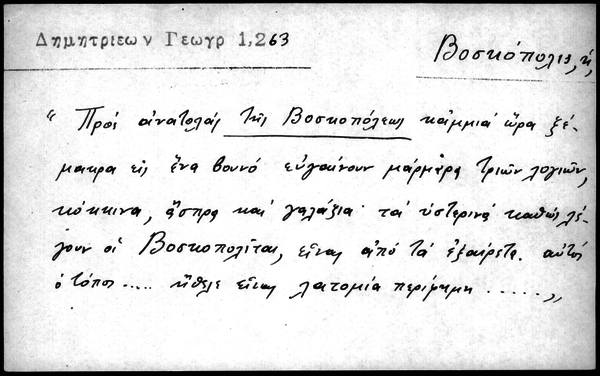 Δημητριεων Γεωγρ 1,263
Βοσκόπολις, ἡ,
“ Πρὸς ἀνατολὰς τῆς Βοσκοπόλεως κάμμιὰ ὥρα ξέ-
μακρα εἰς ἕνα βουνὸ εὐγαίνουν μάρμαρα τριῶν λογιῶν,
κόκκινα, ἄσπρα καὶ γαλάζια· τὰ ὑστερινὰ καθὼς λέ-
γουν οἱ Βοσκοπολῖται, εἶναι ἀπὸ τὰ ἐξαίρετα. αὐτὸς
ὁ τόπος ..... ἤθελε εἶναι λατομία περίφημη ..... „